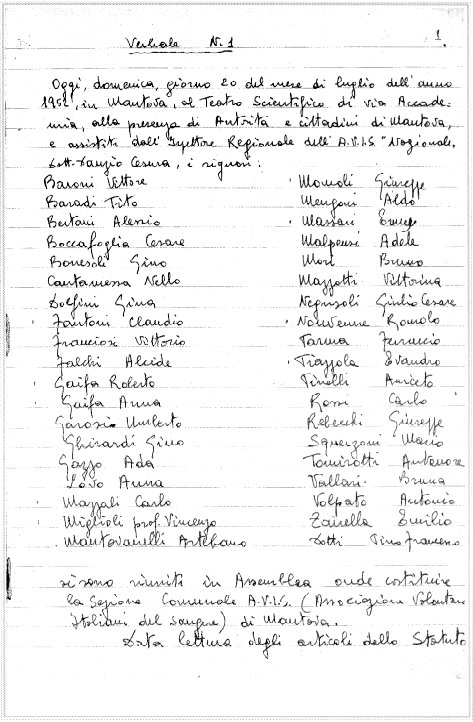 1.
Verbale N. 1
Oggi, domenica, giorno 20 del mese di luglio dell'anno
1952, in Mantova, al Teatro Scientifico di via Accade-
mia, alla presenza di Autorità e cittadini di Mantova,
e assistiti dall'Ispettore Regionale dell'A.V.I.S. "Nazionale,
dott. Danzio Cesura, i signori:
Baroni Vittore Momoli Giuseppe
Baradi Tito Mengoni Aldo
Bertani Alessio Massari
Boccafoglia Cesare Malpensi Adele
Bonesoli Gino Mori Bruno
Cantamessa Nello Mazzotti Vittorina
Dolfini Gina Negrisoli Giulio Cesare
Fantoni Claudio Nonvenne Romolo
Franciosi Vittorio Parma Ferruccio
Falchi Alcide Piazzola Evandro
Gaifa Roberto Pinelli Aniceto
Gaifa Anna Rossi Carlo
Garosio Umberto Rebecchi Giuseppe
Ghirardi Gino Squerzoni Mario
Gazzo Ada Tomirotti Antenore
Lovo Anna Vallari Bruna
Mazzali Carlo Volpato Antonio
Miglioli prof. Vincenzo Zanella Emilio
Mantovanelli Artebano Dotti Pino Francesco
si sono riuniti in Assemblea onde costituire
la Sezione Comunale A.V.I.S. (Associazione Volontari
Italiani del Sangue) di Mantova.
Data lettura degli articoli dello Statuto